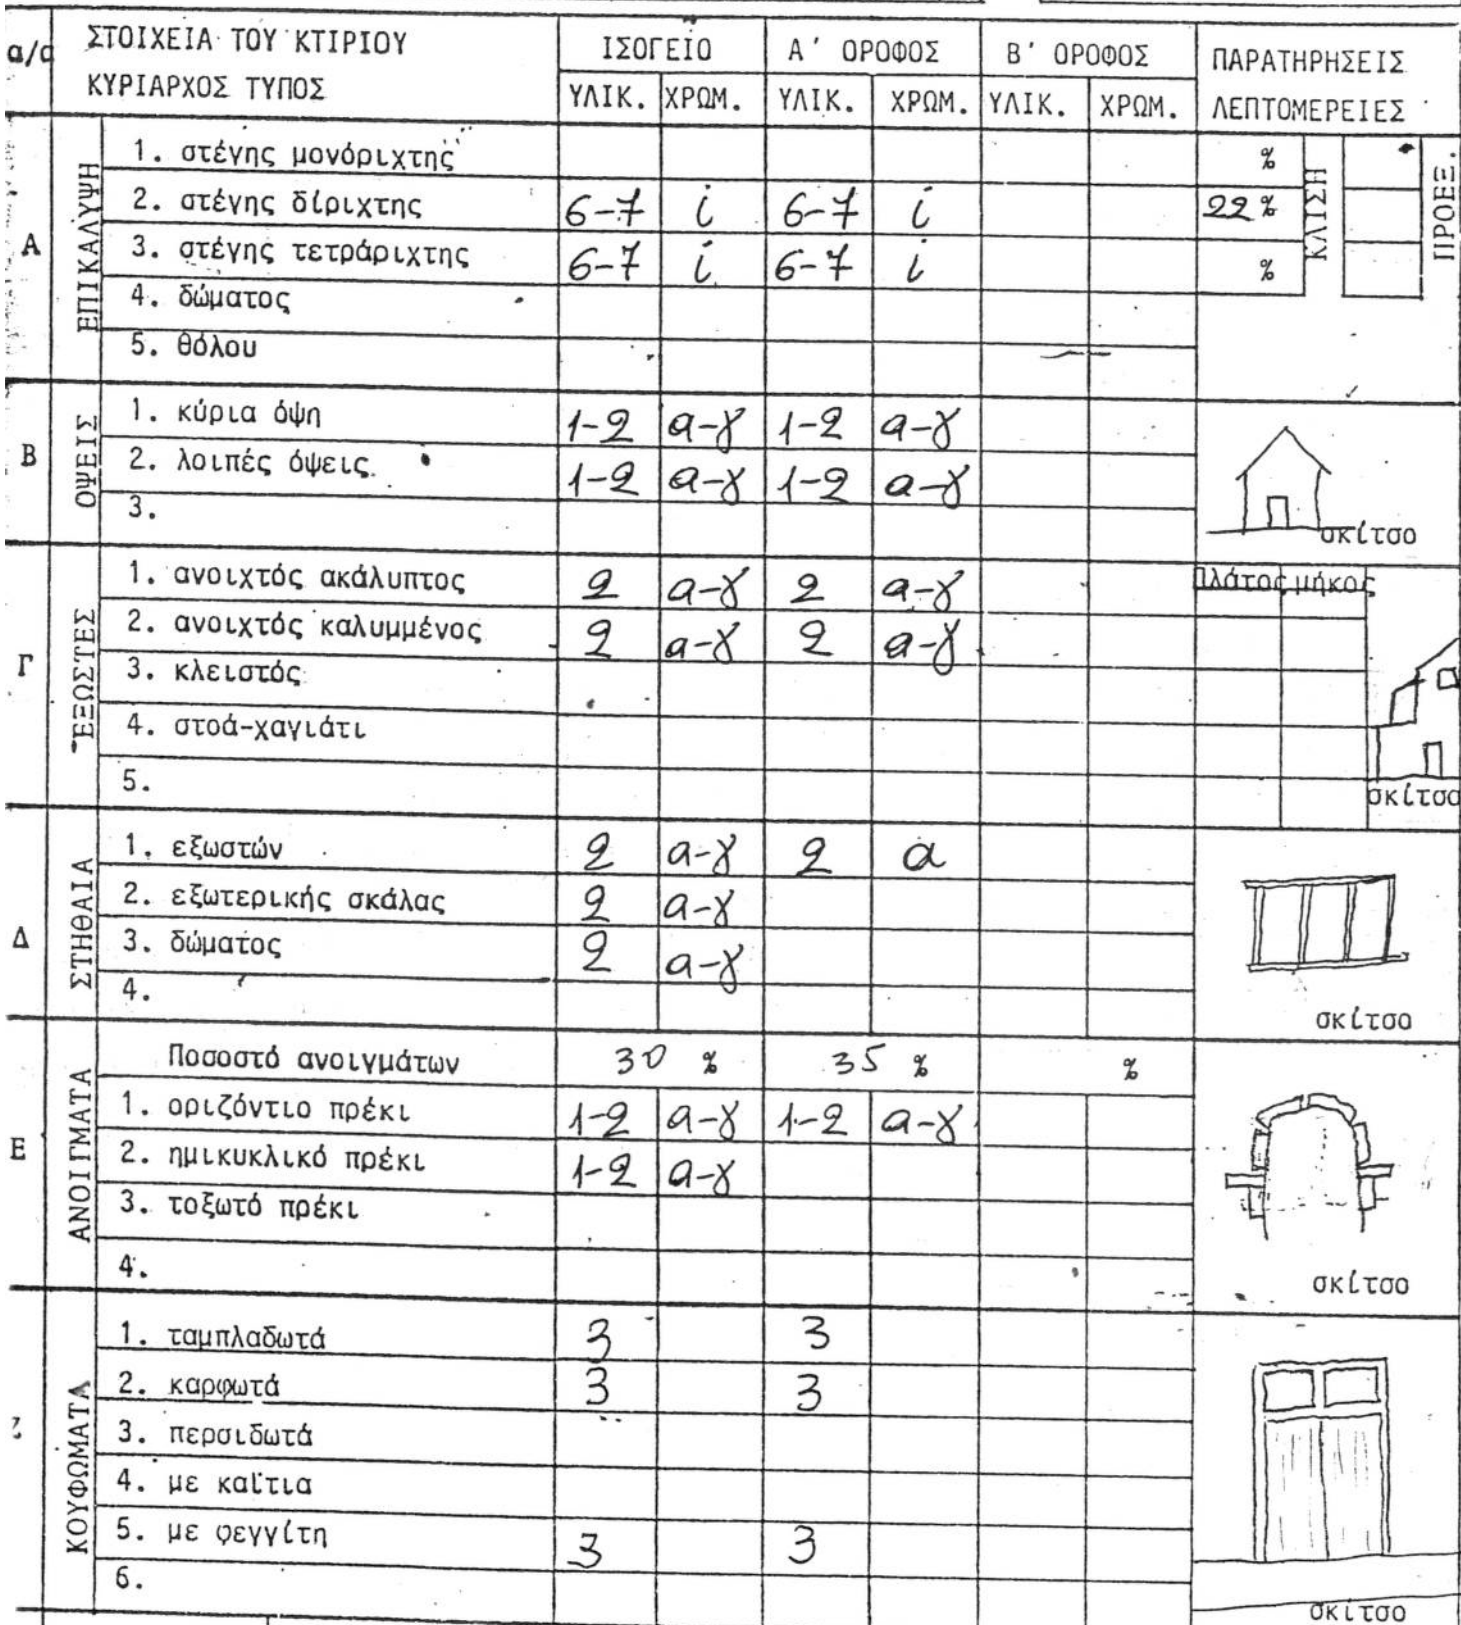 α/α ΣΤΟΙΧΕΙΑ ΤΟΥ ΚΤΙΡΙΟΥ ΙΣΟΓΕΙΟ Α' ΟΡΟΦΟΣ Β' ΟΡΟΦΟΣ ΠΑΡΑΤΗΡΗΣΕΙΣ
ΚΥΡΙΑΡΧΟΣ ΤΥΠΟΣ ΥΛΙΚ. ΧΡΩΜ. ΥΛΙΚ. ΧΡΩΜ. ΥΛΙΚ. ΧΡΩΜ. ΛΕΠΤΟΜΕΡΕΙΕΣ
Α ΕΠΙΚΑΛΥΨΗ
1. στέγης μονόριχτης % ΚΛΙΣΗ ΠΡΟΕΞ.
2. στέγης δίριχτης 6-7 i 6-7 i 22%
3. στέγης τετράριχτης 6-7 i 6-7 i %
4. δώματος
5. θόλου
Β ΟΨΕΙΣ
1. κύρια όψη 1-2 α-γ 1-2 α-γ
2. λοιπές όψεις 1-2 α-γ 1-2 α-γ
3. σκίτσο
Γ ΕΞΩΣΤΕΣ
1. ανοιχτός ακάλυπτος 2 α-γ 2 α-γ πλάτος μήκος
2. ανοιχτός καλυμμένος 2 α-γ 2 α-γ
3. κλειστός
4. στοά-χαγιάτι
5. σκίτσο
Δ ΣΤΗΘΑΙΑ
1. εξωστών 2 α-γ 2 α
2. εξωτερικής σκάλας 2 α-γ
3. δώματος 2 α-γ
4. σκίτσο
Ε ΑΝΟΙΓΜΑΤΑ
Ποσοστό ανοιγμάτων 30 % 35 % %
1. οριζόντιο πρέκι 1-2 α-γ 1-2 α-γ
2. ημικυκλικό πρέκι 1-2 α-γ
3. τοξωτό πρέκι
4. σκίτσο
ΚΟΥΦΩΜΑΤΑ
1. ταμπλαδωτά 3 3
2. καρφωτά 3 3
3. περσιδωτά
4. με καΐτια
5. με φεγγίτη 3 3
6.
σκίτσο